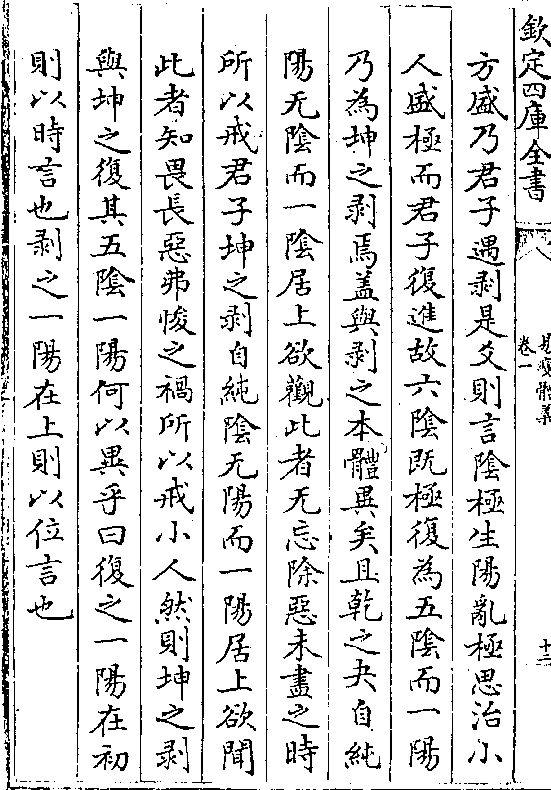 欽定四庫全書
易變體義
卷一
十二
方盛乃君子遇剥是爻則言陰極生陽亂極思治小
人盛極而君子復進故六陰既極復為五陰而一陽
乃為坤之剥焉盖與剥之本體異矣且乾之夬自純
陽无陰而一陰居上欲觀此者无忘除惡未盡之時
所以戒君子坤之剥自純陰无陽而一陽居上欲聞
此者知畏長惡弗悛之禍所以戒小人然則坤之剥
與坤之復其五陰一陽何以異乎曰復之一陽在初
則以時言也剥之一陽在上則以位言也